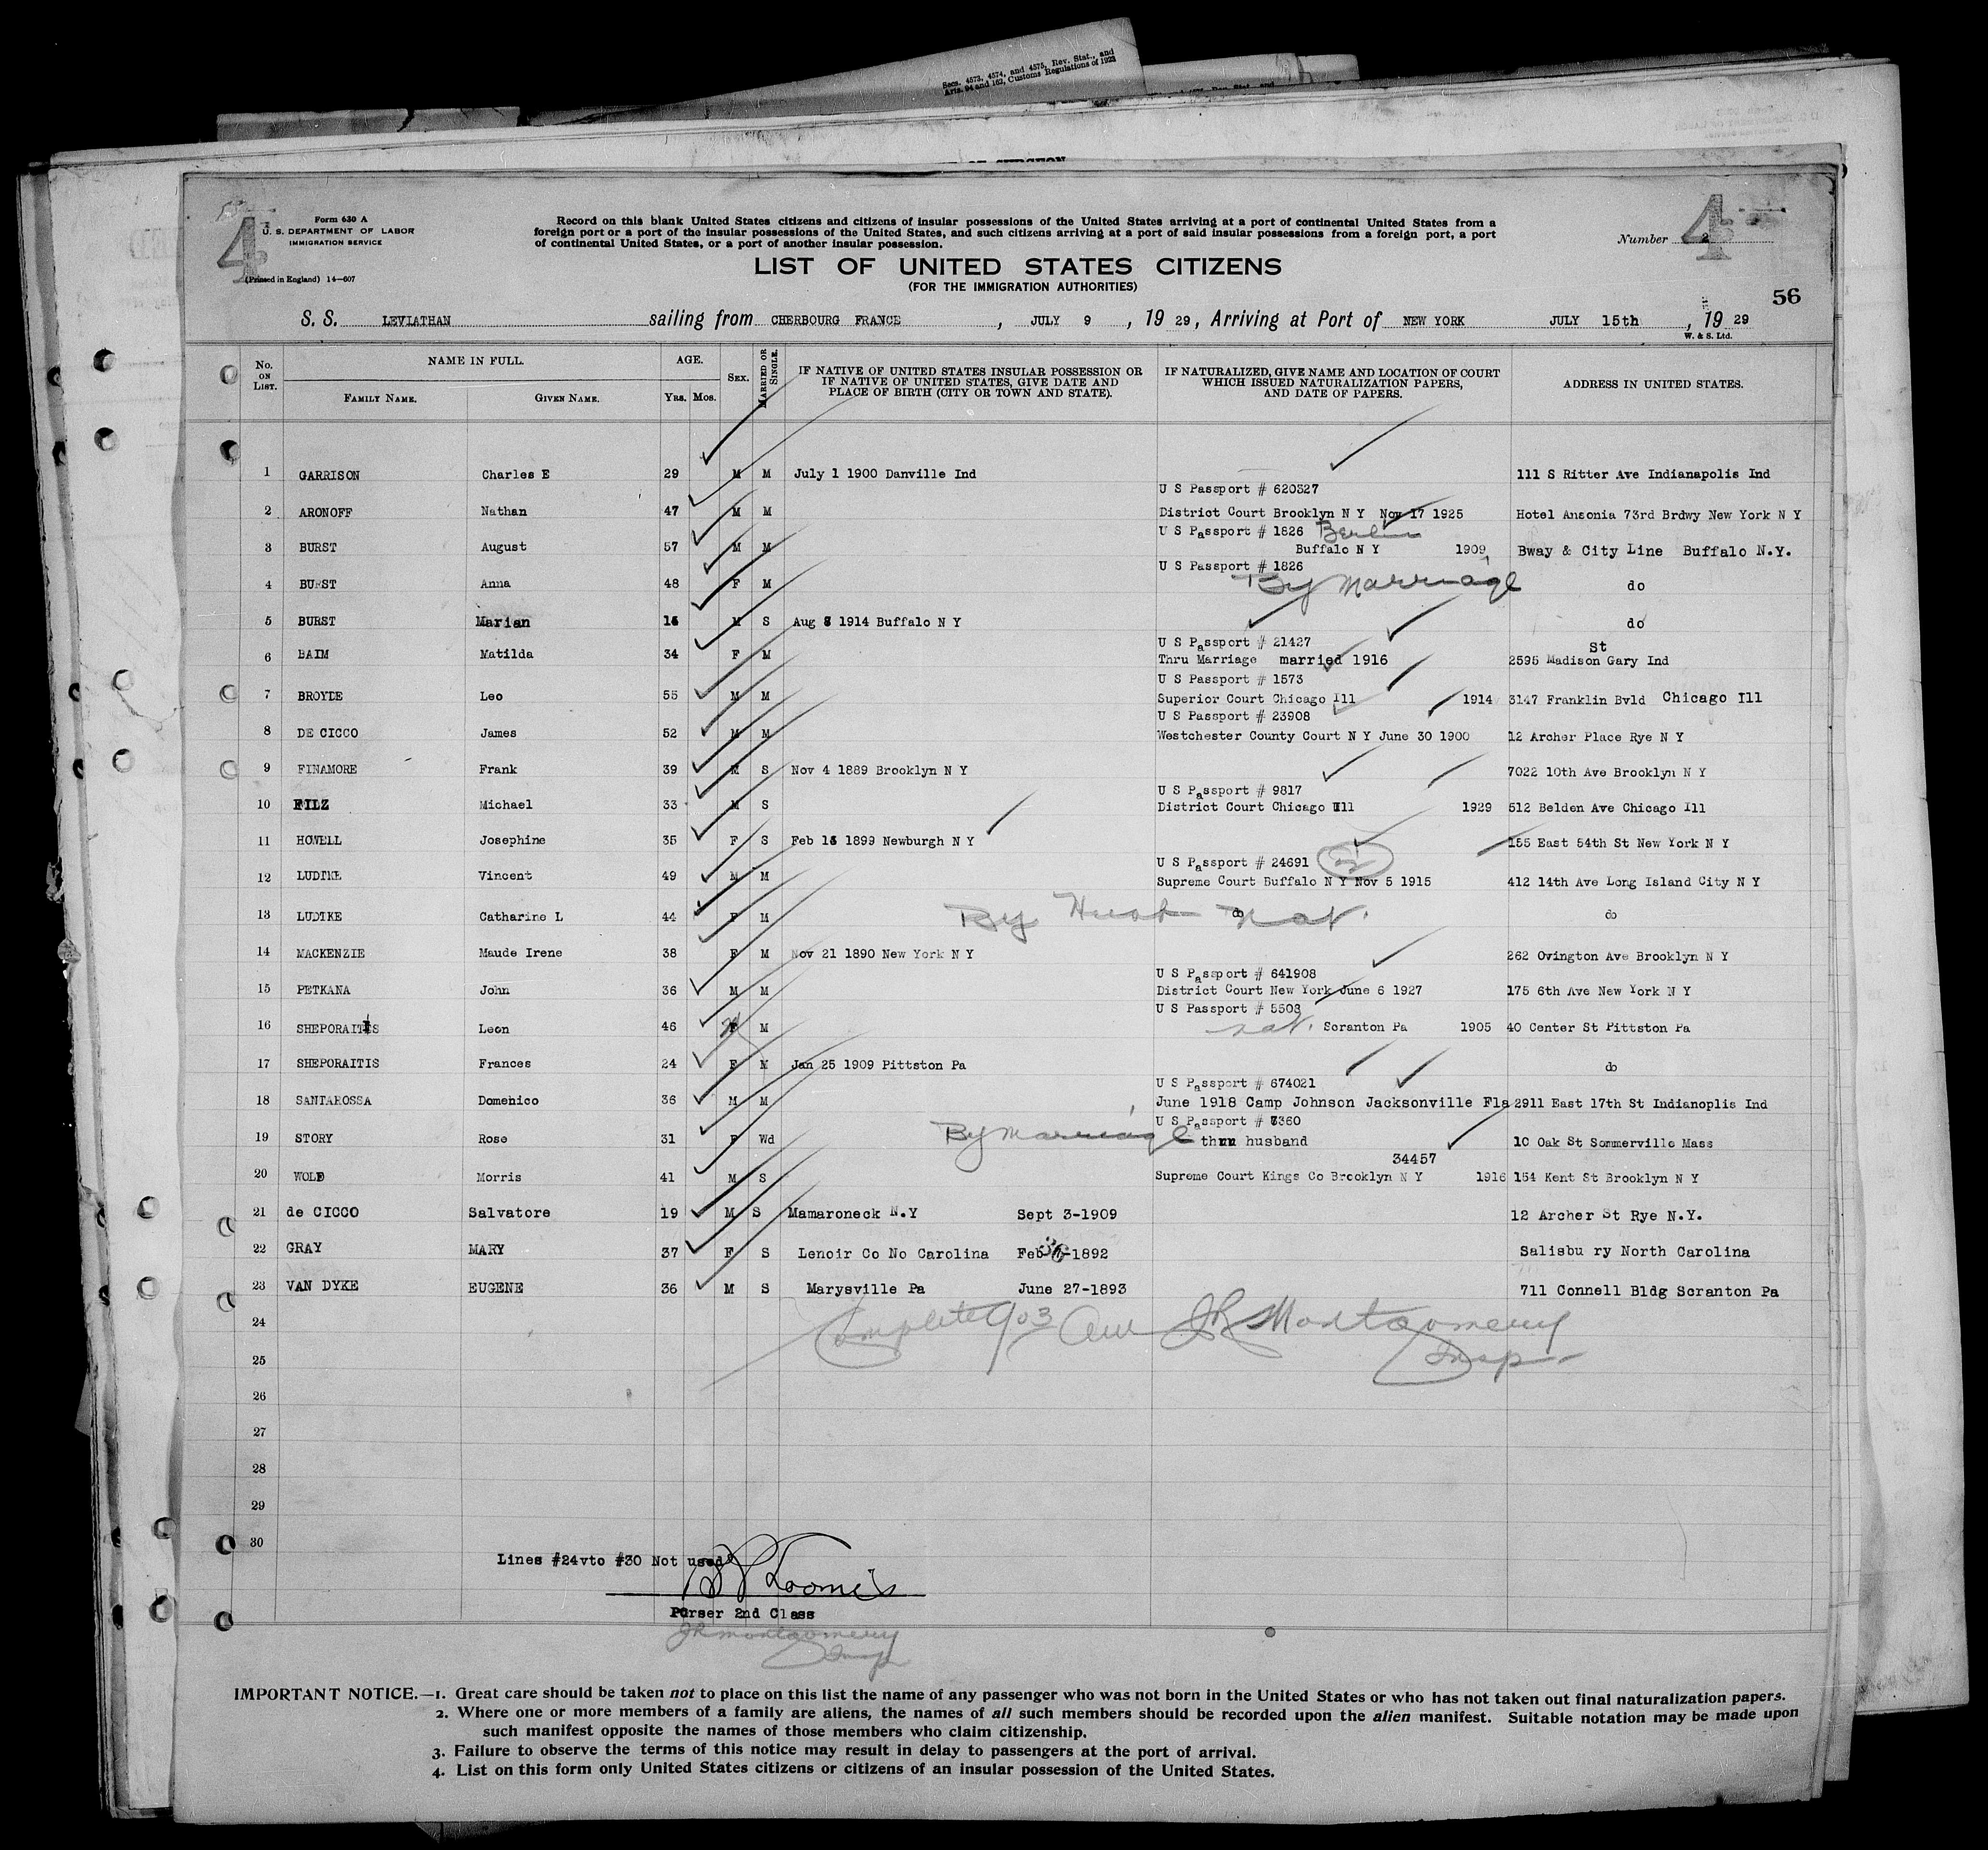 Secs. 4573, 4574, and 4575, Rev. Stat., and
Arts. 94 and 162, Customs Regulations of 1923
4
Form 630 A
U. S. DEPARTMENT OF LABOR
IMMIGRATION SERVICE
(Printed in England) 14—607
Record on this blank United States citizens and citizens of insular possessions of the United States arriving at a port of continental United States from a
foreign port or a port of the insular possessions of the United States, and such citizens arriving at a port of said insular possessions from a foreign port, a port
of continental United States, or a port of another insular possession.
Number 2
4
LIST OF UNITED STATES CITIZENS
(FOR THE IMMIGRATION AUTHORITIES)
56
S. S. LEVIATHAN sailing from CHERBOURG FRANCE, JULY 9, 1929, Arriving at Port of NEW YORK JULY 15th, 1929
W. & S. Ltd.
No. ON LIST. NAME IN FULL. AGE. SEX. MARRIED OR SINGLE. IF NATIVE OF UNITED STATES INSULAR POSSESSION OR IF NATIVE OF UNITED STATES, GIVE DATE AND PLACE OF BIRTH (CITY OR TOWN AND STATE). IF NATURALIZED, GIVE NAME AND LOCATION OF COURT WHICH ISSUED NATURALIZATION PAPERS, AND DATE OF PAPERS. ADDRESS IN UNITED STATES.
FAMILY NAME. GIVEN NAME. YRS. MOS.
1 GARRISON Charles E 29 M M July 1 1900 Danville Ind 111 S Ritter Ave Indianapolis Ind
U S Passport # 620327
2 ARONOFF Nathan 47 M M District Court Brooklyn N Y Nov 17 1925 Hotel Ansonia 73rd Brdwy New York N Y
U S Passport # 1826 Berlin
3 BURST August 57 M M Buffalo N Y 1909 Bway & City Line Buffalo N.Y.
U S Passport # 1826
4 BURST Anna 48 F M By Marriage do
5 BURST Marian M S Aug 1914 Buffalo N Y do
U S Passport # 21427 St
6 BAIM Matilda 34 F M Thru Marriage married 1916 2595 Madison Gary Ind
U S Passport # 1573
7 BROYDE Leo 55 M M Superior Court Chicago Ill 1914 3147 Franklin Bvld Chicago Ill
U S Passport # 23908
8 DE CICCO James 52 M M Westchester County Court N Y June 30 1900 12 Archer Place Rye N Y
9 FINAMORE Frank 39 M S Nov 4 1889 Brooklyn N Y 7022 10th Ave Brooklyn N Y
U S Passport # 9817
10 FILZ Michael 33 M S District Court Chicago Ill 1929 512 Belden Ave Chicago Ill
11 HOWELL Josephine 35 F S Feb 1899 Newburgh N Y 155 East 54th St New York N Y
U S Passport # 24691
12 LUDTKE Vincent 49 M M Supreme Court Buffalo N Y Nov 5 1915 412 14th Ave Long Island City N Y
13 LUDTKE Catharine L 44 F M By Husb do nat. do
14 MACKENZIE Maude Irene 38 F M Nov 21 1890 New York N Y 262 Ovington Ave Brooklyn N Y
U S Passport # 641908
15 PETKANA John 36 M M District Court New York June 6 1927 175 6th Ave New York N Y
U S Passport # 5503
16 SHEPORAITIS Leon 46 M M nat. Scranton Pa 1905 40 Center St Pittston Pa
17 SHEPORAITIS Frances 24 F M Jan 25 1909 Pittston Pa do
U S Passport # 674021
18 SANTAROSSA Domenico 36 M M June 1918 Camp Johnson Jacksonville Fla 2911 East 17th St Indianoplis Ind
U S Passport # 7360
19 STORY Rose 31 F Wd By Marriage thru husband 10 Oak St Sommerville Mass
34457
20 WOLD Morris 41 M S Supreme Court Kings Co Brooklyn N Y 1916 154 Kent St Brooklyn N Y
21 de CICCO Salvatore 19 M S Mamaroneck N.Y Sept 3-1909 12 Archer St Rye N.Y.
22 GRAY MARY 37 F S Lenoir Co No Carolina Feb -1892 Salisbu ry North Carolina
23 VAN DYKE EUGENE 36 M S Marysville Pa June 27-1893 711 Connell Bldg Scranton Pa
24 Complete 903 JR Montgomery
25 Insp
26
27
28
29
30
Lines #24vto #30 Not used
Loomis
Purser 2nd Class
JR Montgomery
Insp
IMPORTANT NOTICE.—1. Great care should be taken not to place on this list the name of any passenger who was not born in the United States or who has not taken out final naturalization papers.
2. Where one or more members of a family are aliens, the names of all such members should be recorded upon the alien manifest. Suitable notation may be made upon
such manifest opposite the names of those members who claim citizenship.
3. Failure to observe the terms of this notice may result in delay to passengers at the port of arrival.
4. List on this form only United States citizens or citizens of an insular possession of the United States.